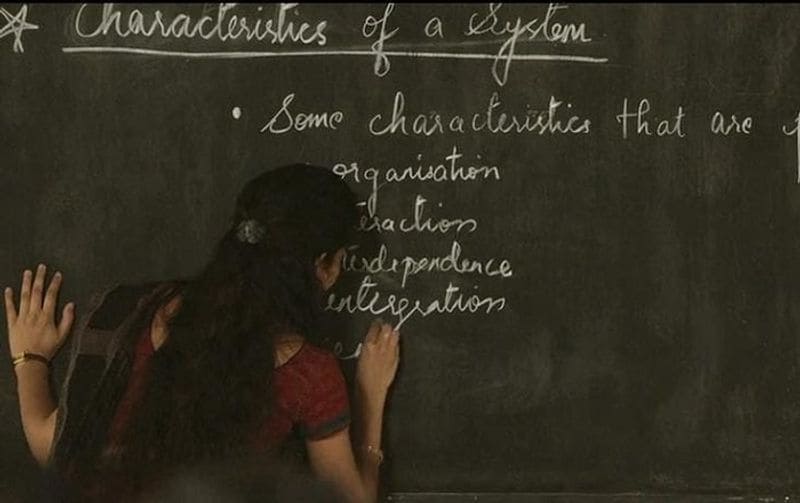 Characteristics of a System
• Some characteristics that are
organisation
eraction
terdependence
entergration